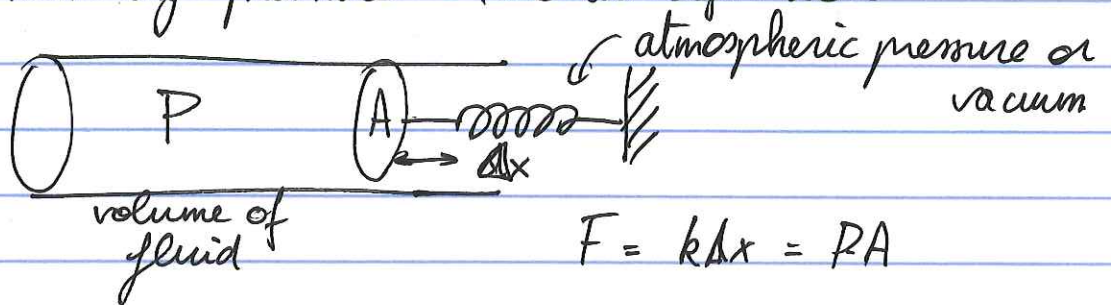 atmospheric pressure or
vacuum
P
A
Δx
volume of
fluid
F = kΔx = PA